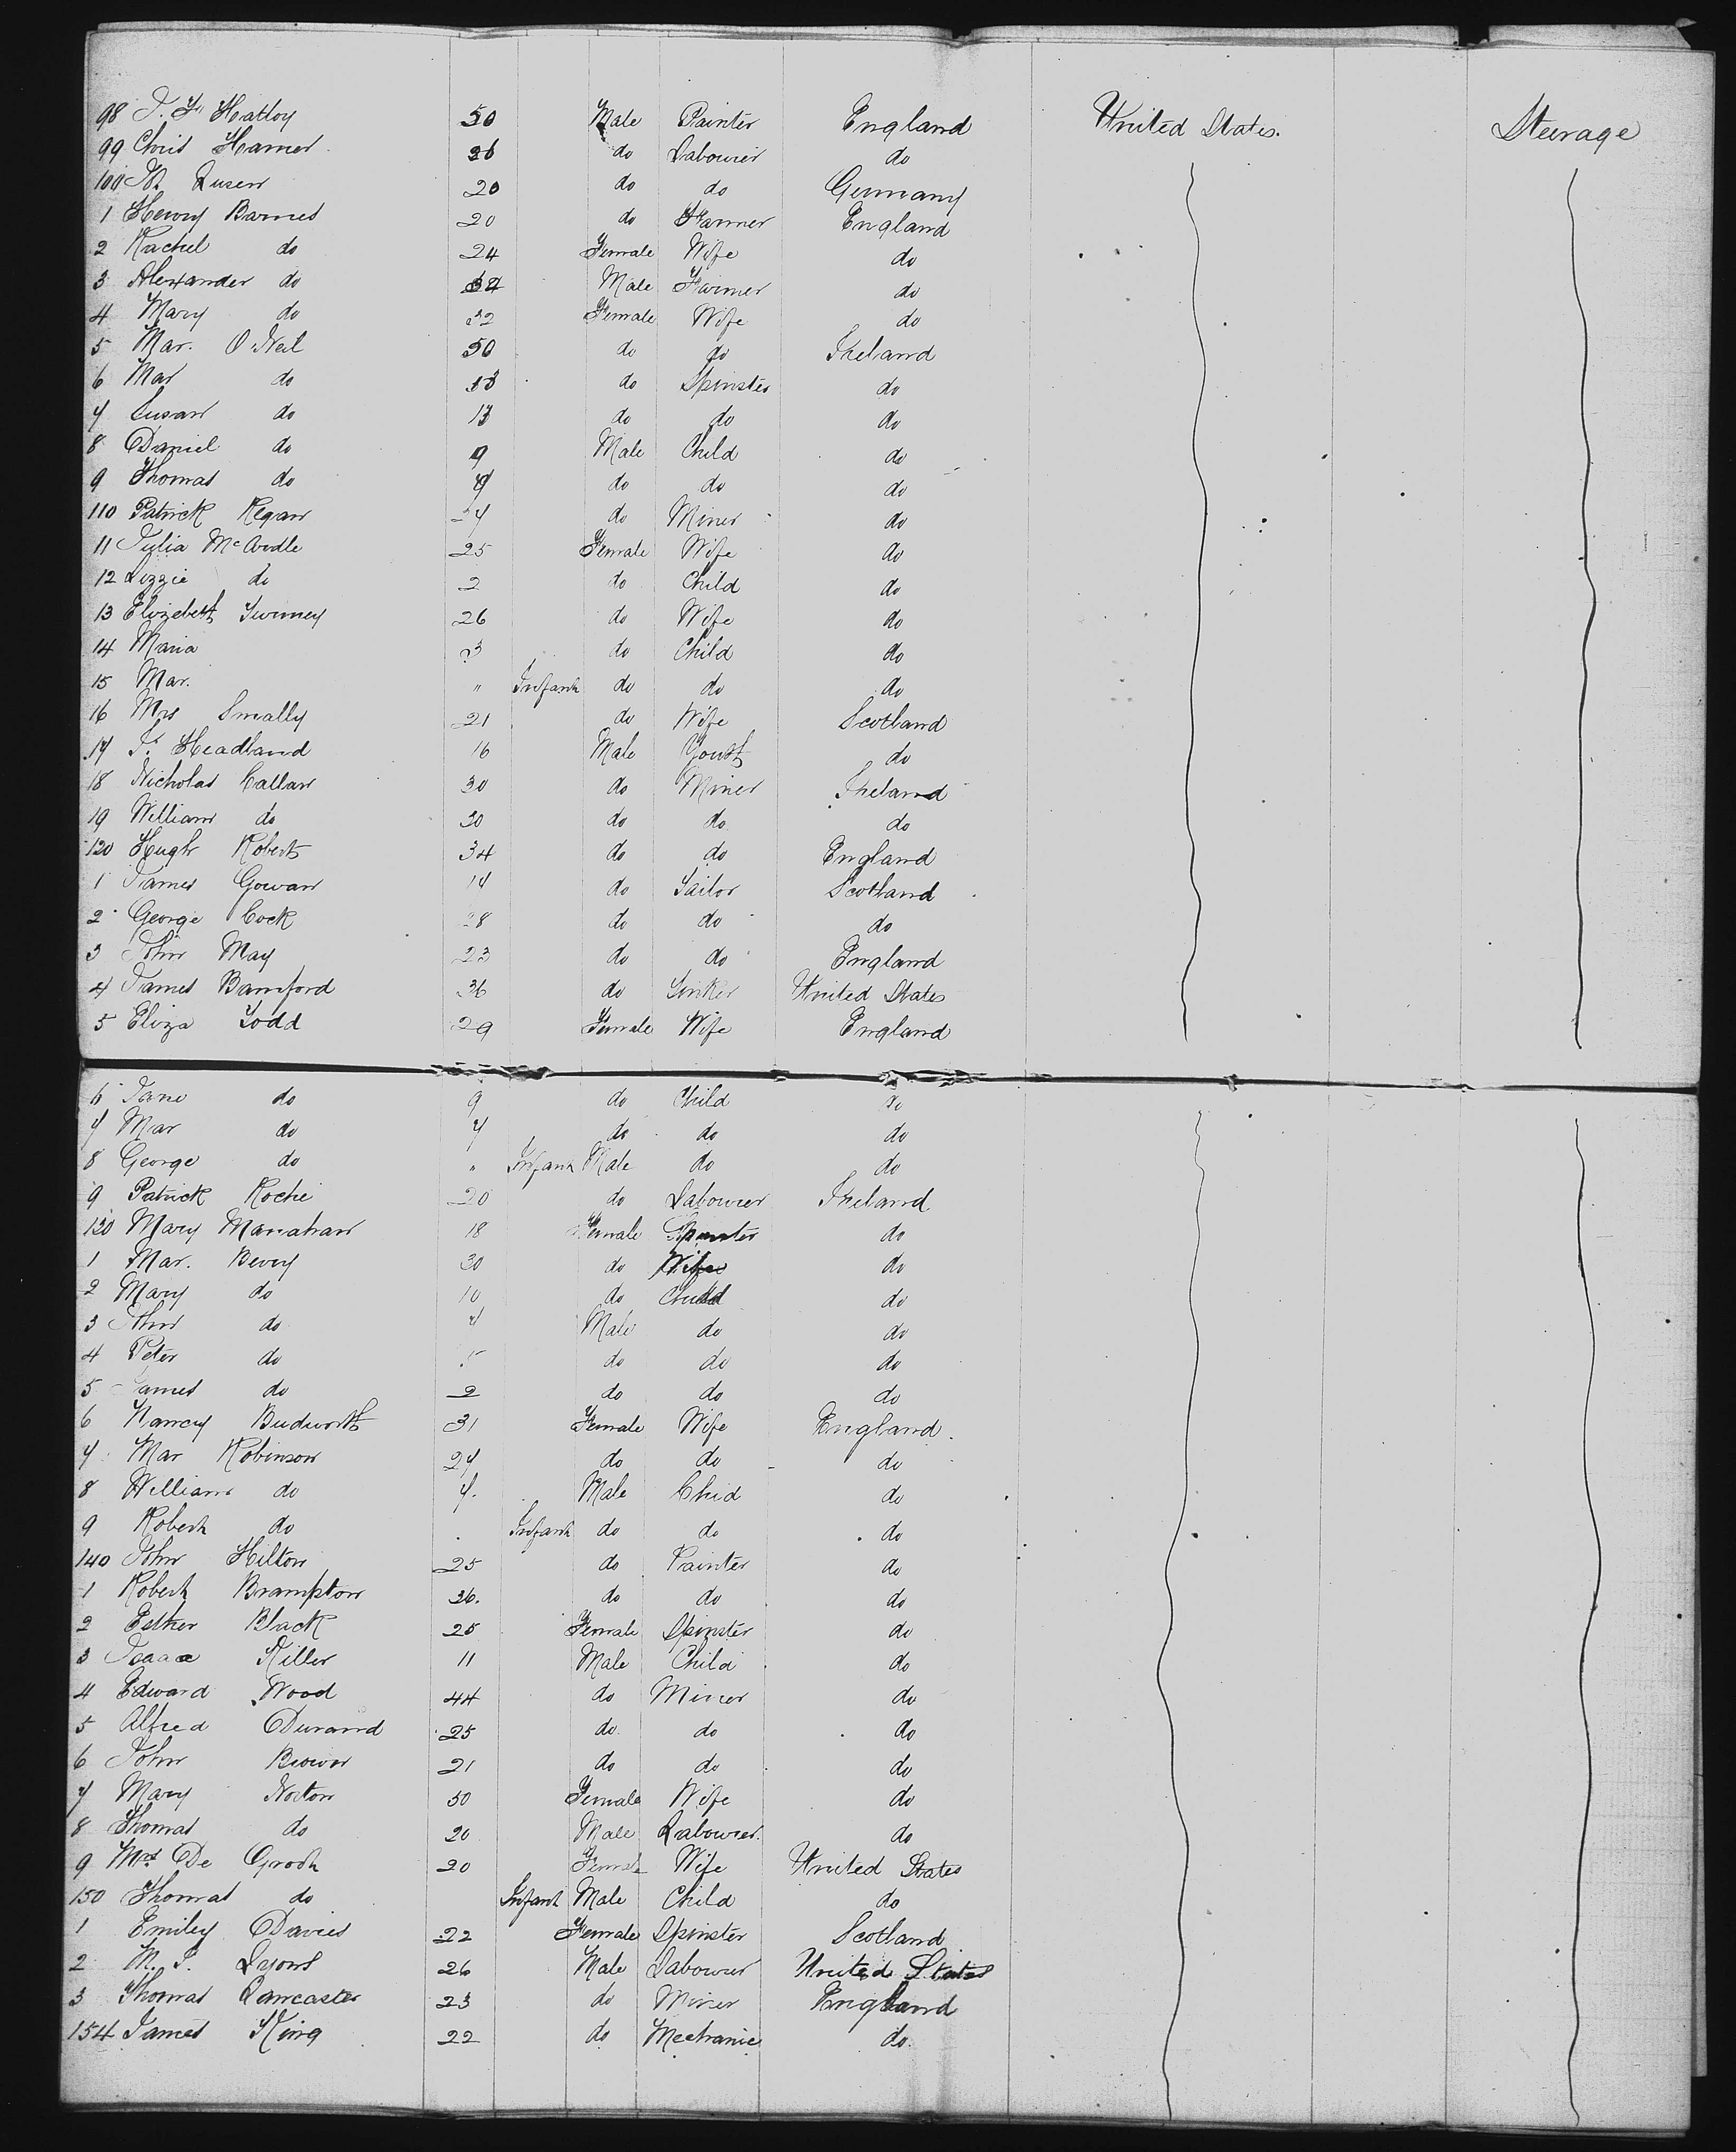 98 T. F. Hatloy 50 Male Painter England United States. Steerage
99 Chris Hamer 26 do Labourer do
100 M. Lusen 20 do do Germany
1 Henry Barnes 20 do Farmer England
2 Rachel do 24 Female Wife do
3 Alexander do Male Farmer do
4 Mary do 32 Female Wife do
5 Mar. O'Neil 50 do do Ireland
6 Mar do do Spinster do
7 Susan do 13 do do do
8 Daniel do 9 Male Child do
9 Thomas do do do do
110 Patrick Regan 27 do Miner do
11 Julia McArdle 25 Female Wife do
12 Lizzie do 2 do Child do
13 Elizebeth Twimey 26 do Wife do
14 Maria 3 do Child do
15 Mar. " Infant do do do
16 Mrs Smally 21 do Wife Scotland
17 T. Headland 16 Male Youth do
18 Nicholas Callan 30 do Miner Ireland
19 William do 30 do do do
120 Hugh Roberts 34 do do England
1 James Gowan 17 do Sailor Scotland
2 George Cock 28 do do do
3 John May 23 do do England
4 James Bamford 36 do Sinker United States
5 Eliza Todd 29 Female Wife England
6 Jane do 9 do Child do
7 Mar do 7 do do do
8 George do " Infant Male do do
9 Patrick Roche 20 do Labourer Ireland
130 Mary Manahan 18 Female Spinster do
1 Mar. Bevey 30 do Wife do
2 Mary do 10 do Child do
3 John do 7 Male do do
4 Peter do 5 do do do
5 James do 2 do do do
6 Nancy Budworth 31 Female Wife England
7 Mar Robinson 27 do do do
8 William do 7. Male Chid do
9 Robert do Infant do do do
140 John Hilton 25 do Painter do
1 Robert Brampton 26. do do do
2 Esther Black 25 Female Spinster do
3 Isaac Killer 11 Male Child do
4 Edward Wood 44 do Miner do
5 Alfred Durand 25 do do do
6 John Brown 21 do do do
7 Mary Norton 50 Female Wife do
8 Thomas do 20 Male Labourer. do
9 Mrs De Groot 20 Female Wife United States
150 Thomas do Infant Male Child do
1 Emiley Davies 22 Female Spinster Scotland
2 M. S. Lyons 26 Male Labourer United States
3 Thomas Lancaster 23 do Miner England
154 James King 22 do Mechanic do.